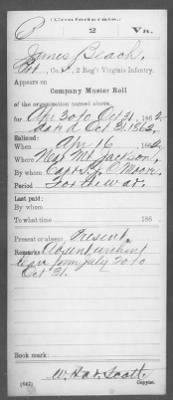 (Confederate.)
2 Va.
James Beach,
Pvt, Co. , 2 Reg't Virginia Infantry.
Appears on
Company Muster Roll
of the organization named above,
for Apr 30 to Oct 31, 1862,
dated Oct 31, 1862.
Enlisted:
When Apr 16, 1862.
Where Near Mt. Jackson,
By whom Capt. S. J. C. Moore,
Period for the war.
Last paid:
By whom
To what time , 186 .
Present or absent Present.
Remarks: Absent without
leave from July 20 to
Oct 21.
Book mark:
(642)
Copyist.